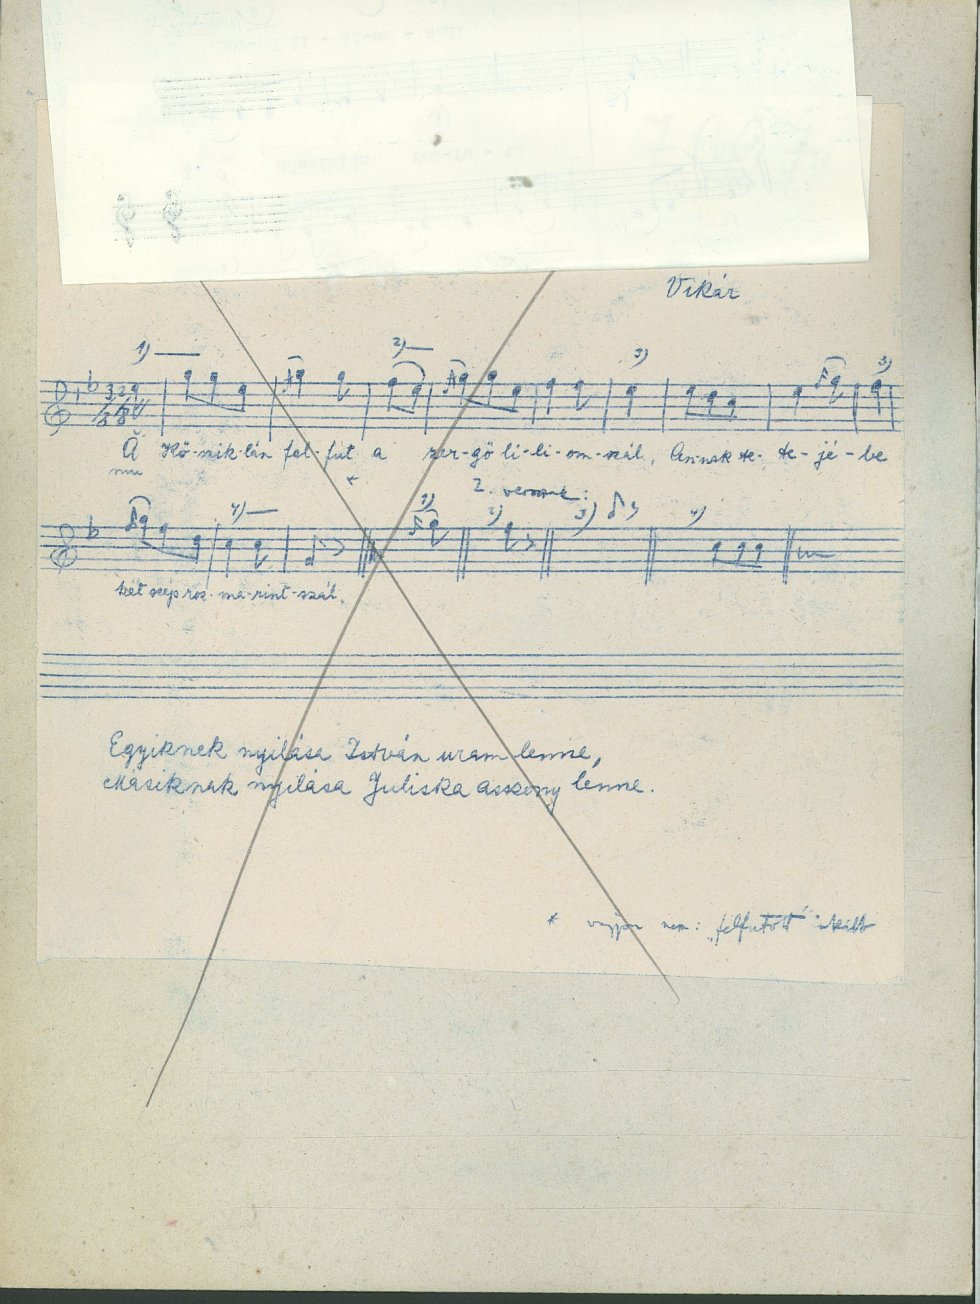 Vikár
1) 2) 3) 3)
Ă Kő-szik-lán fel-fut a zer-gő li-li-om-szál, Annak te-te-jé-be
*
2. verse:
4) 1) 2) 3) 4)
két szép roz-ma-rint-szál.
Egyiknek nyilása István uram lenne,
Másiknak nyilása Juliska asszony lenne.
* nem: „felfutott"